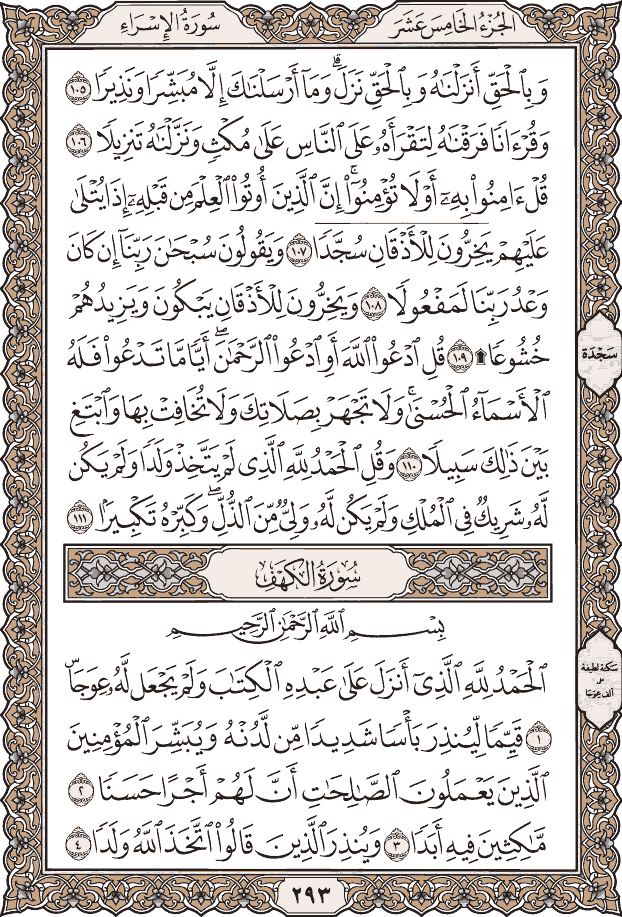 الجُزْءُ الخَامِسَ عَشَرَ
سُورَةُ الإِسْرَاءِ
وَبِٱلْحَقِّ أَنزَلْنَٰهُ وَبِٱلْحَقِّ نَزَلَۗ وَمَآ أَرْسَلْنَٰكَ إِلَّا مُبَشِّرًا وَنَذِيرًا ١٠٥
وَقُرْءَانًا فَرَقْنَٰهُ لِتَقْرَأَهُۥ عَلَى ٱلنَّاسِ عَلَىٰ مُكْثٍ وَنَزَّلْنَٰهُ تَنزِيلًا ١٠٦
قُلْ ءَامِنُوا۟ بِهِۦٓ أَوْ لَا تُؤْمِنُوٓا۟ۚ إِنَّ ٱلَّذِينَ أُوتُوا۟ ٱلْعِلْمَ مِن قَبْلِهِۦٓ إِذَا يُتْلَىٰ
عَلَيْهِمْ يَخِرُّونَ لِلْأَذْقَانِ سُجَّدًا ١٠٧ وَيَقُولُونَ سُبْحَٰنَ رَبِّنَآ إِن كَانَ
وَعْدُ رَبِّنَا لَمَفْعُولًا ١٠٨ وَيَخِرُّونَ لِلْأَذْقَانِ يَبْكُونَ وَيَزِيدُهُمْ
خُشُوعًا ۩ ١٠٩ قُلِ ٱدْعُوا۟ ٱللَّهَ أَوِ ٱدْعُوا۟ ٱلرَّحْمَٰنَۖ أَيًّا مَّا تَدْعُوا۟ فَلَهُ
سَجْدَة
ٱلْأَسْمَآءُ ٱلْحُسْنَىٰۚ وَلَا تَجْهَرْ بِصَلَاتِكَ وَلَا تُخَافِتْ بِهَا وَٱبْتَغِ
بَيْنَ ذَٰلِكَ سَبِيلًا ١١٠ وَقُلِ ٱلْحَمْدُ لِلَّهِ ٱلَّذِى لَمْ يَتَّخِذْ وَلَدًا وَلَمْ يَكُن
لَّهُۥ شَرِيكٌ فِى ٱلْمُلْكِ وَلَمْ يَكُن لَّهُۥ وَلِىٌّ مِّنَ ٱلذُّلِّۖ وَكَبِّرْهُ تَكْبِيرًۢا ١١١
سُورَةُ الكَهْفِ
بِسْمِ ٱللَّهِ ٱلرَّحْمَٰنِ ٱلرَّحِيمِ
ٱلْحَمْدُ لِلَّهِ ٱلَّذِىٓ أَنزَلَ عَلَىٰ عَبْدِهِ ٱلْكِتَٰبَ وَلَمْ يَجْعَل لَّهُۥ عِوَجَاۜ
سكتة لطيفة
على
ألف عِوَجَا
١ قَيِّمًا لِّيُنذِرَ بَأْسًا شَدِيدًا مِّن لَّدُنْهُ وَيُبَشِّرَ ٱلْمُؤْمِنِينَ
ٱلَّذِينَ يَعْمَلُونَ ٱلصَّٰلِحَٰتِ أَنَّ لَهُمْ أَجْرًا حَسَنًا ٢
مَّٰكِثِينَ فِيهِ أَبَدًا ٣ وَيُنذِرَ ٱلَّذِينَ قَالُوا۟ ٱتَّخَذَ ٱللَّهُ وَلَدًا ٤
٢٩٣